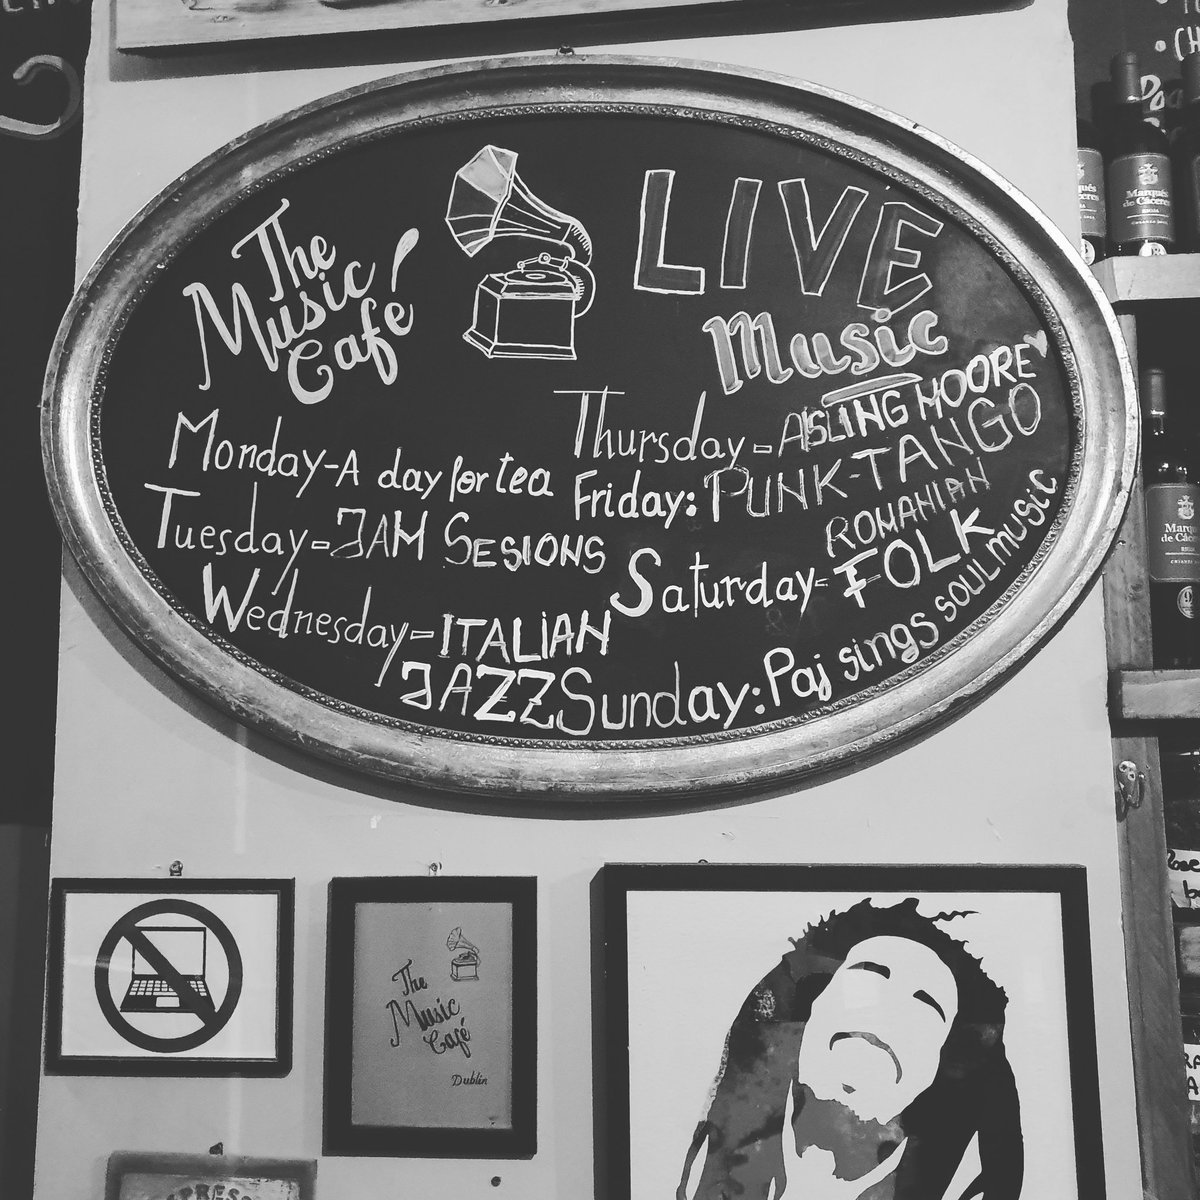 The
Music
Café
LIVE
Music
Monday-A day for tea
Tuesday-JAM SESIONS
Wednesday-ITALIAN
JAZZ
Thursday-AISLING MOORE
Friday: PUNK-TANGO
Saturday-ROMANIAN
FOLK
Sunday: Paj sings soul music
The
Music
Café
Dublin
Marqués
de Cáceres
RIOJA
Marqués
de Cáceres